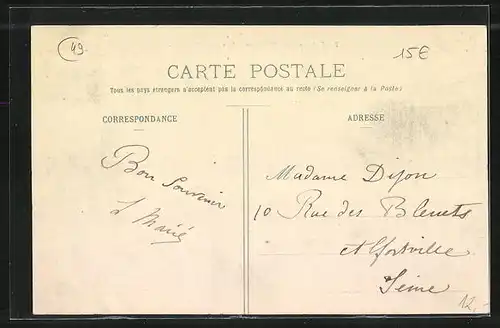 49
15€
CARTE POSTALE
Tous les pays étrangers n'acceptent pas la correspondance au recto (Se renseigner à la Poste)
CORRESPONDANCE
ADRESSE
Bon Souvenir
Madame Dijon
10 Rue des Bleuets
Alfortville
Seine
12,-